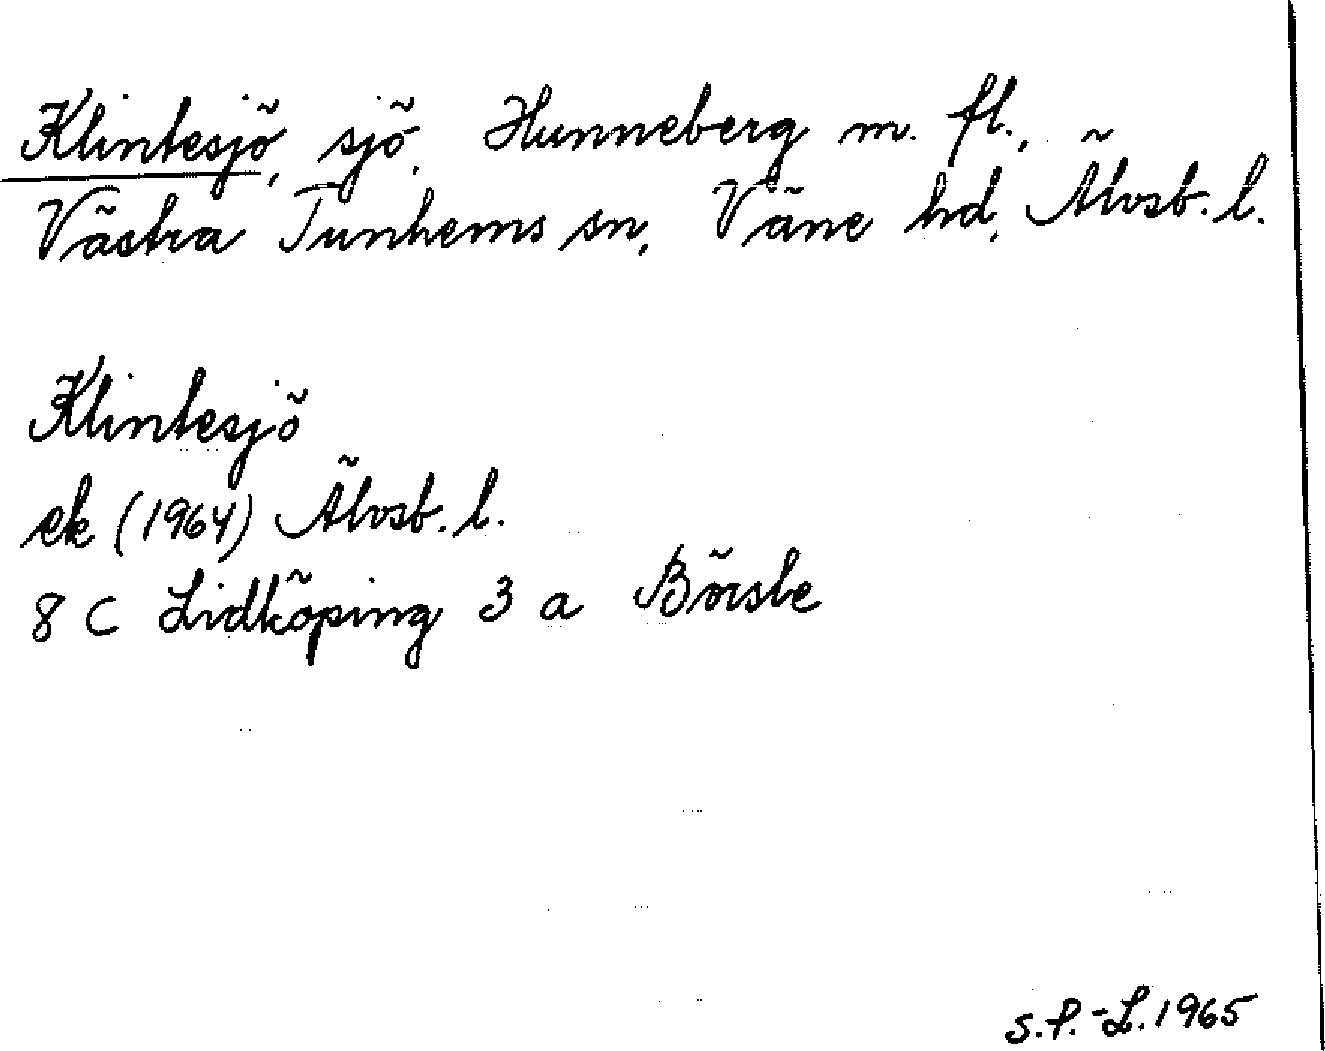 Klintesjö, sjö, Hunneberg m. fl.,
Västra Tunhems sn, Väne hd, Älvsb. l.
Klintesjö
ek (1964) Älvsb. l.
8 C Lidköping 3 a Börsle
S.P.-L. 1965